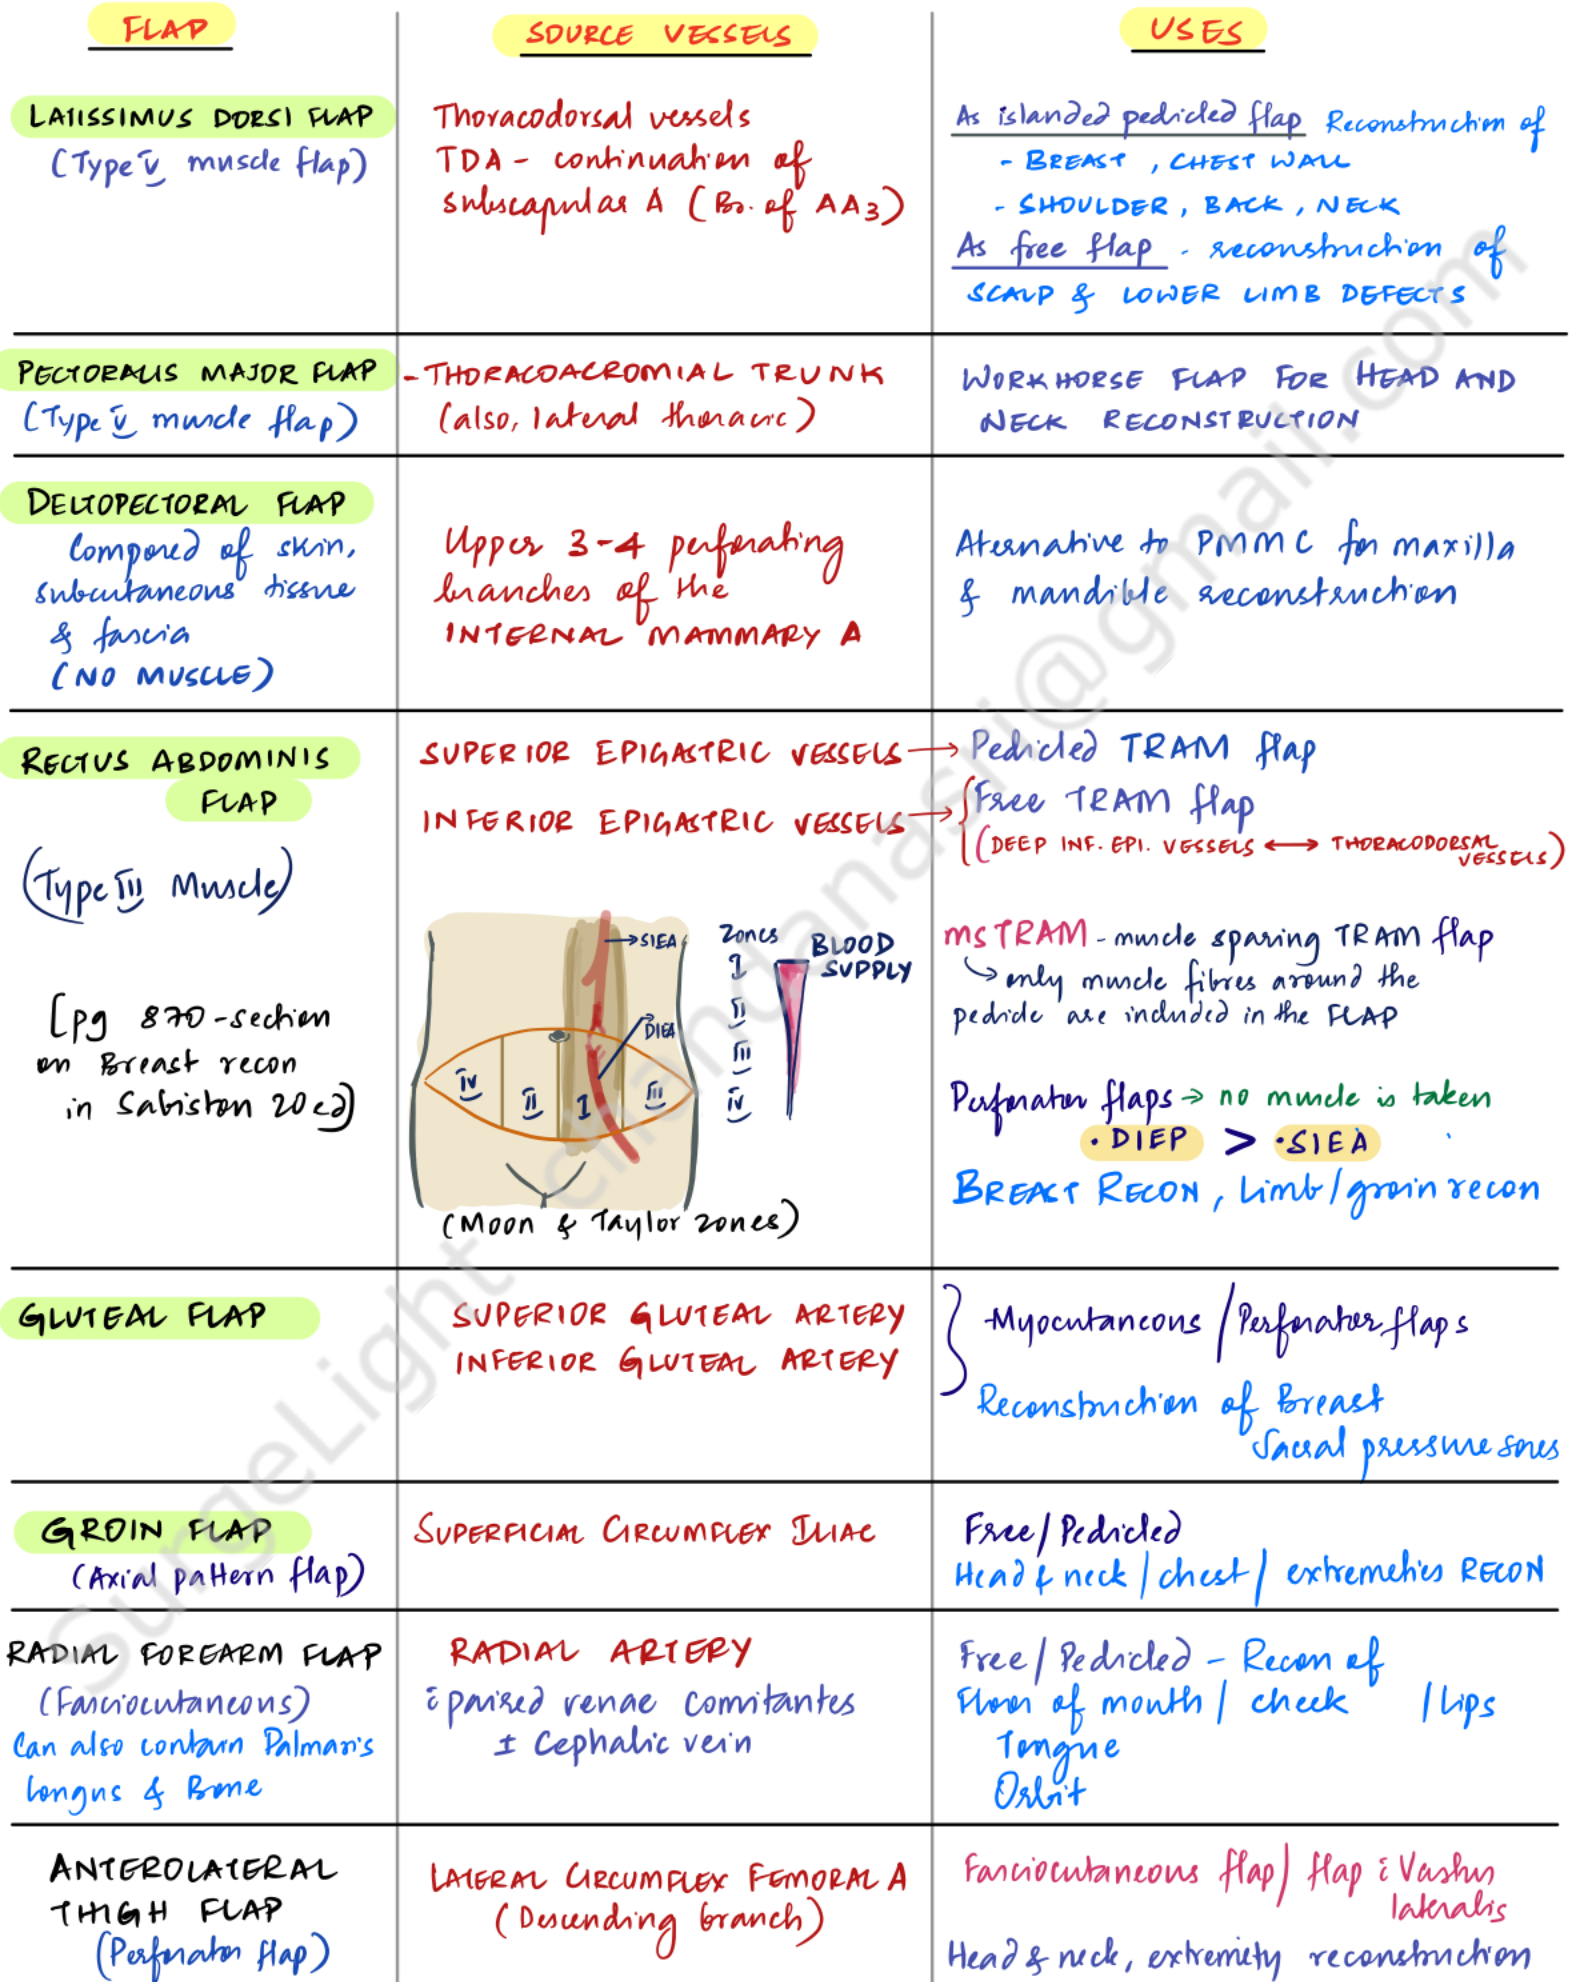 FLAP
SOURCE VESSELS
USES
LATISSIMUS DORSI FLAP
(Type V muscle flap)
Thoracodorsal vessels
TDA - continuation of
subscapular A (Br. of AA3)
As islanded pedicled flap Reconstruction of
- BREAST, CHEST WALL
- SHOULDER, BACK, NECK
As free flap - reconstruction of
SCALP & LOWER LIMB DEFECTS
PECTORALIS MAJOR FLAP
(Type V muscle flap)
- THORACOACROMIAL TRUNK
(also, lateral thoracic)
WORKHORSE FLAP FOR HEAD AND
NECK RECONSTRUCTION
DELTOPECTORAL FLAP
Composed of skin,
subcutaneous tissue
& fascia
(NO MUSCLE)
Upper 3-4 perforating
branches of the
INTERNAL MAMMARY A
Aternative to PMMC for maxilla
& mandible reconstruction
RECTUS ABDOMINIS
FLAP
(Type III Muscle)
[pg 870-section
on Breast recon
in Sabiston 20ed]
SUPERIOR EPIGASTRIC VESSELS →
INFERIOR EPIGASTRIC VESSELS →
→ SIEA
DIEA
IV II I III
Zones
I
II
III
IV
BLOOD
SUPPLY
(Moon & Taylor zones)
Pedicled TRAM flap
Free TRAM flap
(DEEP INF. EPI. VESSELS ↔ THORACODORSAL
VESSELS)
msTRAM - muscle sparing TRAM flap
↳ only muscle fibres around the
pedicle are included in the FLAP
Perforator flaps → no muscle is taken
• DIEP > • SIEA
BREAST RECON, Limb/groin recon
GLUTEAL FLAP
SUPERIOR GLUTEAL ARTERY
INFERIOR GLUTEAL ARTERY
Myocutaneous / Perforator flaps
Reconstruction of Breast
Sacral pressure sores
GROIN FLAP
(Axial pattern flap)
SUPERFICIAL CIRCUMFLEX ILIAC
Free/Pedicled
Head & neck / chest / extremeties RECON
RADIAL FOREARM FLAP
(Fasciocutaneous)
Can also contain Palmaris
longus & Bone
RADIAL ARTERY
c̄ paired venae comitantes
± Cephalic vein
Free / Pedicled - Recon of
Floor of mouth / cheek / Lips
Tongue
Orbit
ANTEROLATERAL
THIGH FLAP
(Perforator flap)
LATERAL CIRCUMFLEX FEMORAL A
(Descending branch)
Fasciocutaneous flap / flap c̄ Vastus
lateralis
Head & neck, extremity reconstruction
SurgeLight chandanasri@gmail.com